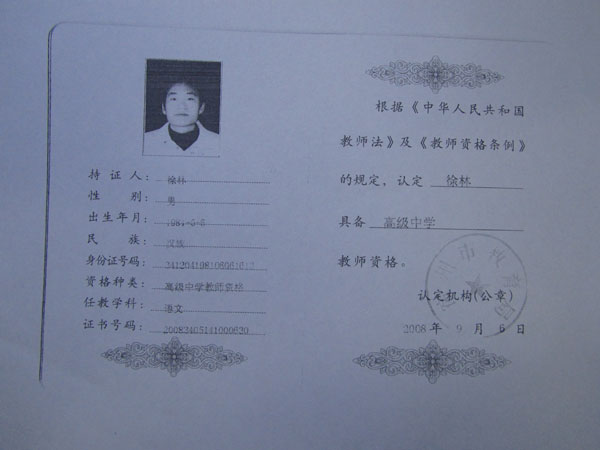 持 证 人： 徐林
性 别： 男
出生年月：
民 族： 汉族
身份证号码：
资格种类： 高级中学教师资格
任教学科：
证书号码：
根据《中华人民共和国
教师法》及《教师资格条例》
的规定，认定 徐林
具备 高级中学
教师资格。
认定机构(公章)
2008 年 9 月 6 日